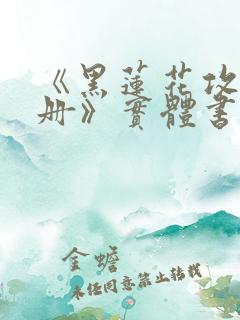 《黑莲花攻
册》實體書
金蟾
未经同意禁止转载